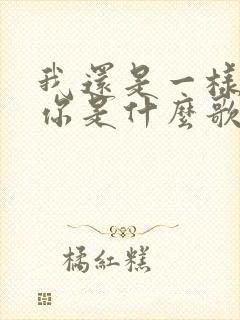 我還是一樣
你是什麼歌
橘紅糕